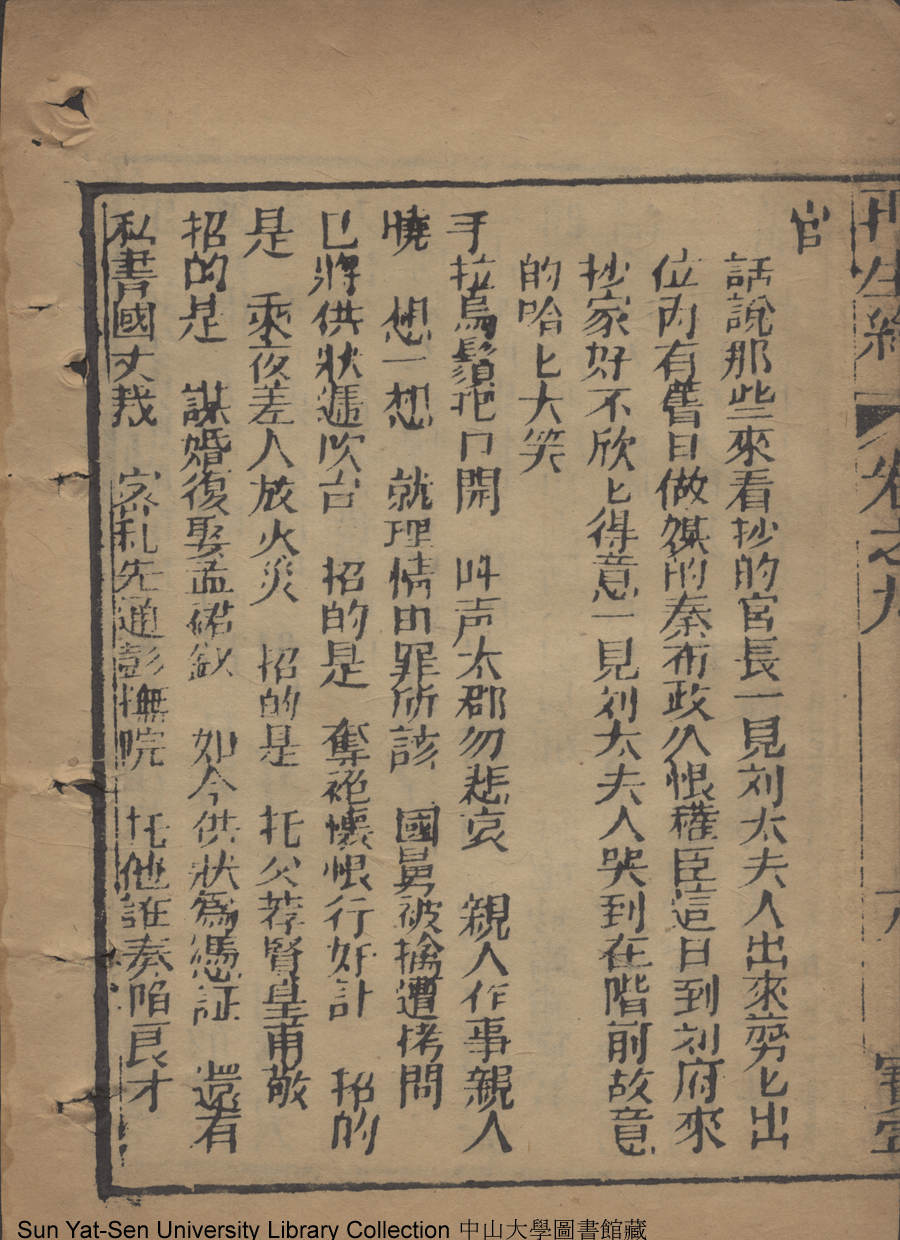 再生緣 卷之九 寶堂
官
話說那些來看抄的官長一見刘太夫人出來势匕出
位內有舊日做媒的秦布政久恨權臣這日到刘府來
抄家好不欣匕得意一見刘太夫人哭到在階前故意
的哈匕大笑
手拉烏鬚把口開 叫声太郡勿悲哀 親人作事親人
曉 想一想 就理情由罪所該 國舅被擒遭拷問
已將供狀逓吹台 招的是 奪袍懷恨行奸計 招的
是 乘夜差人放火災 招的是 托父荐賢皇甫敬
招的是 謀婚復娶孟 如今供狀為憑証 還有
私書國丈 密札先通彭撫院 托他誰奏陷良才
Sun Yat-Sen University Library Collection 中山大學圖書館藏